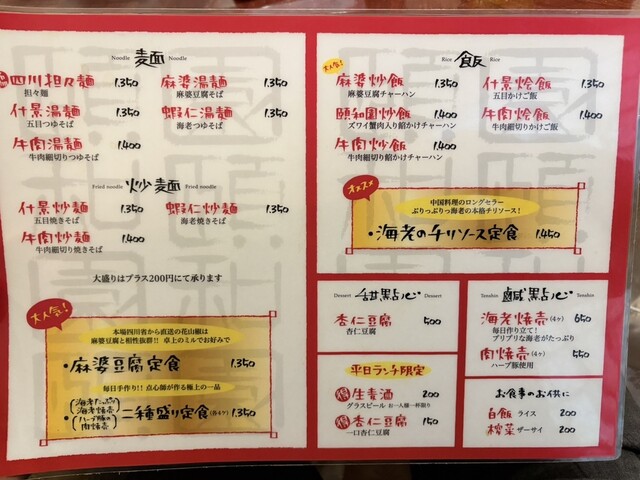 Noodle 麺 Noodle
四川担々麺 1.350
担々麺
什景湯麺 1.350
五目つゆそば
牛肉湯麺 1.400
牛肉細切りつゆそば
麻婆湯麺 1.350
麻婆豆腐そば
蝦仁湯麺 1.350
海老つゆそば
Fried noodle 炒麺 Fried noodle
什景炒麺 1.350
五目焼きそば
牛肉炒麺 1.400
牛肉細切り焼きそば
蝦仁炒麺 1.350
海老焼きそば
大盛りはプラス200円にて承ります
大人気!
本場四川省から直送の花山椒は
麻婆豆腐と相性抜群!! 卓上のミルでお好みで
・麻婆豆腐定食 1.350
毎日手作り!! 点心師が作る極上の一品
・(海老たっぷりの海老焼売 ハーブ豚の肉焼売) 二種盛り定食(各4ヶ) 1.350
Rice 飯 Rice
大人気!
麻婆炒飯 1.350
麻婆豆腐チャーハン
頤和園炒飯 1.400
ズワイ蟹肉入り餡かけチャーハン
牛肉炒飯 1.400
牛肉細切り餡かけチャーハン
什景烩飯 1.350
五目かけご飯
牛肉烩飯 1.400
牛肉細切りかけご飯
オススメ
中国料理のロングセラー
ぷりっぷりっ海老の本格チリソース!
・海老のチリソース定食 1.450
Dessert 甜點心 Dessert
杏仁豆腐 500
杏仁豆腐
平日ランチ限定
生麦酒 200
グラスビール お一人様一杯限り
杏仁豆腐 150
一口杏仁豆腐
Tenshin 鹹點心 Tenshin
海老焼売(4ヶ) 650
毎日作り立て!
プリプリな海老がたっぷり
肉焼売(4ヶ) 550
ハーブ豚使用
お食事のお供に
白飯 ライス 200
搾菜 ザーサイ 200